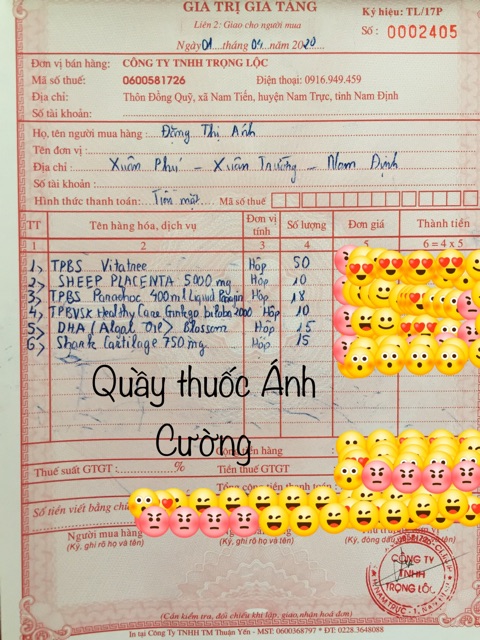 GIÁ TRỊ GIA TĂNG
Liên 2: Giao cho người mua
Ký hiệu: TL/17P
Số : 0002405
Ngày 01 tháng 04 năm 2020
Đơn vị bán hàng: CÔNG TY TNHH TRỌNG LỘC
Mã số thuế: 0600581726 Điện thoại: 0916.949.459
Địa chỉ: Thôn Đồng Quỹ, xã Nam Tiến, huyện Nam Trực, tỉnh Nam Định
Số tài khoản:
Họ, tên người mua hàng : Đặng Thị Ánh
Tên đơn vị :
Địa chỉ : Xuân Phú - Xuân Trường - Nam Định
Số tài khoản :
Hình thức thanh toán: Tiền mặt Mã số thuế
TT Tên hàng hóa, dịch vụ Đơn vị tính Số lượng Đơn giá Thành tiền
1 2 3 4 5 6 = 4 x 5
1> TPBS Vitatree Hộp 50
2> SHEEP PLACENTA 5000 mg Hộp 10
3> TPBS Panadoc 400ml Liquid Hộp 18
4> TPBVSK Healthy Care Ginkgo biloba 2000 Hộp 10
5> DHA (Algal Oil) Blossom Hộp 15
6> Shark Cartilage 750 mg Hộp 15
Quầy thuốc Ánh
Cường
Cộng tiền hàng
Thuế suất GTGT : % Tiền thuế GTGT
Tổng cộng tiền thanh toán
Số tiền viết bằng
Người mua hàng
(Ký, ghi rõ họ và tên)
(Ký, ghi rõ họ và tên)
(Ký, đóng dấu
CÔNG TY
TNHH
TRỌNG LỘC
(Cần kiểm tra, đối chiếu khi lập, giao nhận hoá đơn)
In tại Công Ty TNHH TM Thuận Yến - MST: 0600368797 * ĐT: 0228.3648088